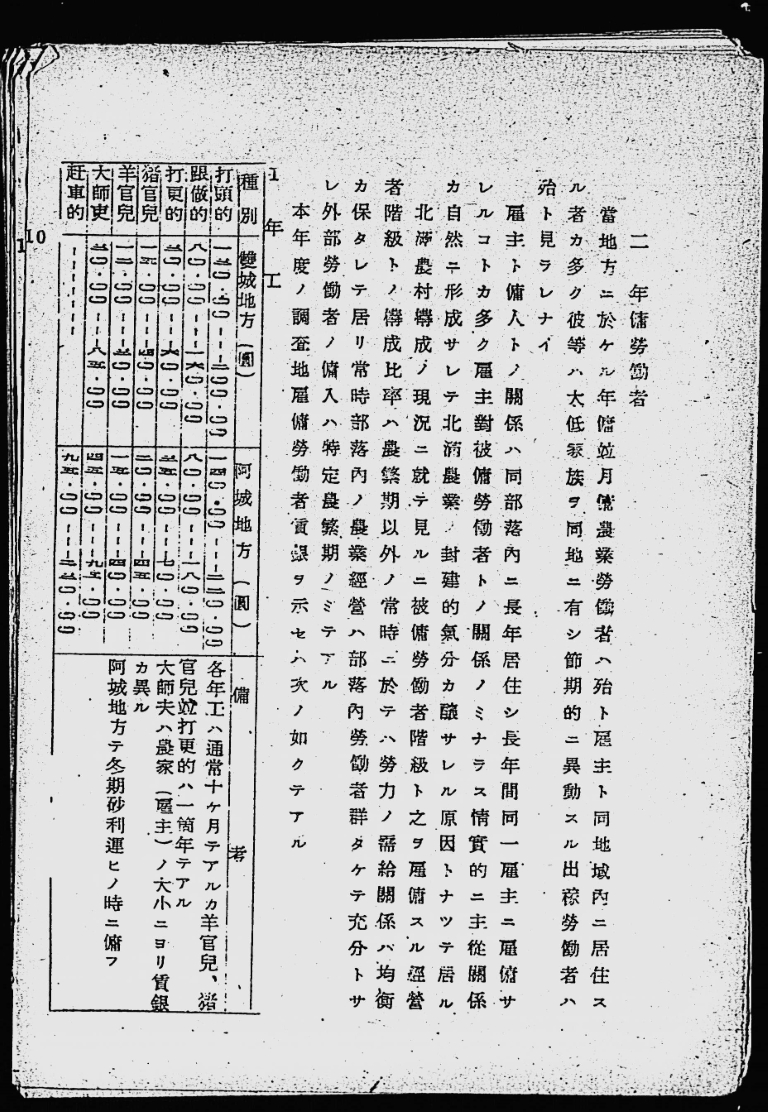 二 年傭勞働者
當地方ニ於ケル年傭竝月傭農業勞働者ハ殆ト雇主ト同地域內ニ居住ス
ル者カ多ク彼等ハ太低家族ヲ同地ニ有シ節期的ニ異動スル出稼勞働者ハ
殆ト見ラレナイ
雇主ト傭人トノ關係ハ同部落內ニ長年居住シ長年間同一雇主ニ雇傭サ
レルコトカ多ク雇主對被傭勞働者トノ關係ノミナラス情實的ニ主從關係
カ自然ニ形成サレテ北滿農業ノ封建的氣分カ釀サレル原因トナツテ居ル
北滿農村構成ノ現況ニ就テ見ルニ被傭勞働者階級ト之ヲ雇傭スル經營
者階級トノ構成比率ハ農繁期以外ノ常時ニ於テハ勞力ノ需給關係ハ均衡
カ保タレテ居リ常時部落內ノ農業經營ハ部落內勞働者群タケテ充分トサ
レ外部勞働者ノ傭入ハ特定農繁期ノミテアル
本年度ノ調査地雇傭勞働者賃銀ヲ示セハ次ノ如クテアル
1 年工
種別 雙城地方(圓) 阿城地方(圓) 備考
打頭的
跟做的
打更的
猪官兒
羊官兒
大師吏
赶車的
各年工ハ通常十ケ月テアルカ羊官兒、猪
官兒竝打更的ハ一箇年テアル
大師夫ハ農家(雇主)ノ大小ニヨリ賃銀
カ異ル
阿城地方テ冬期砂利運ヒノ時ニ傭フ
10
1